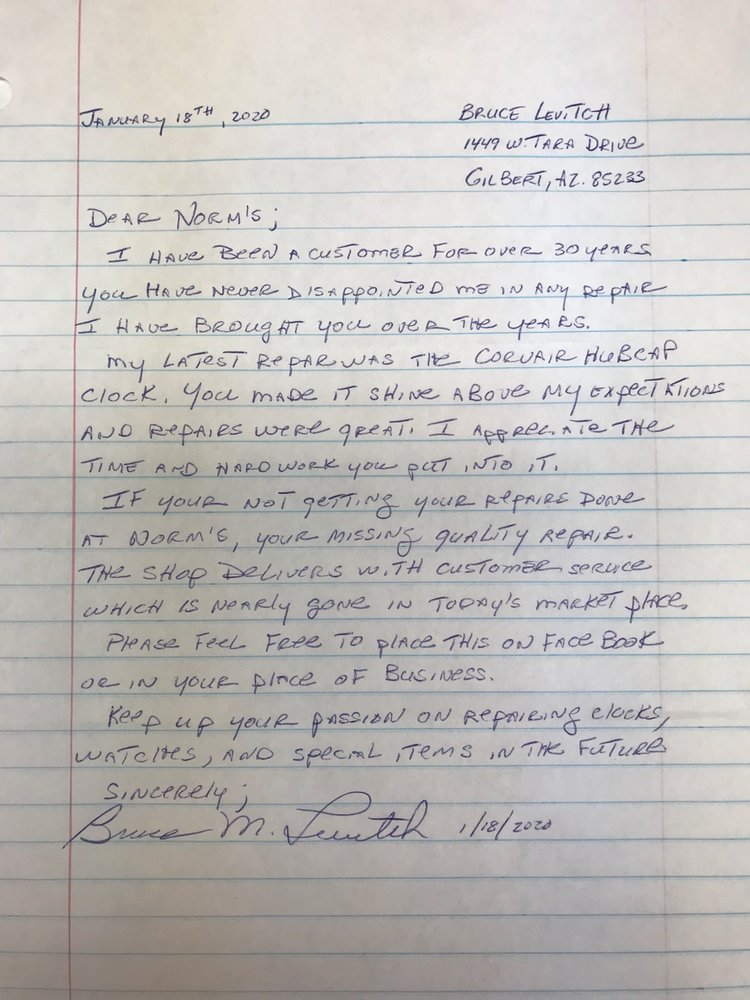 January 18th, 2020 Bruce Levitch
1449 W. Tara Drive
Gilbert, AZ. 85233
Dear Norm's;
I have been a customer for over 30 years
you have never disappointed me in any repair
I have brought you over the years.
My latest repair was the Corvair hubcap
clock. You made it shine above my expectations
and repairs were great. I appreciate the
time and hard work you put into it.
If your not getting your repairs done
at Norm's, your missing quality repair.
The shop delivers with customer service
which is nearly gone in today's market place.
Please feel free to place this on Face Book
or in your place of business.
Keep up your passion on repairing clocks,
watches, and special items in the future
Sincerely;
Bruce M. Levitch 1/18/2020